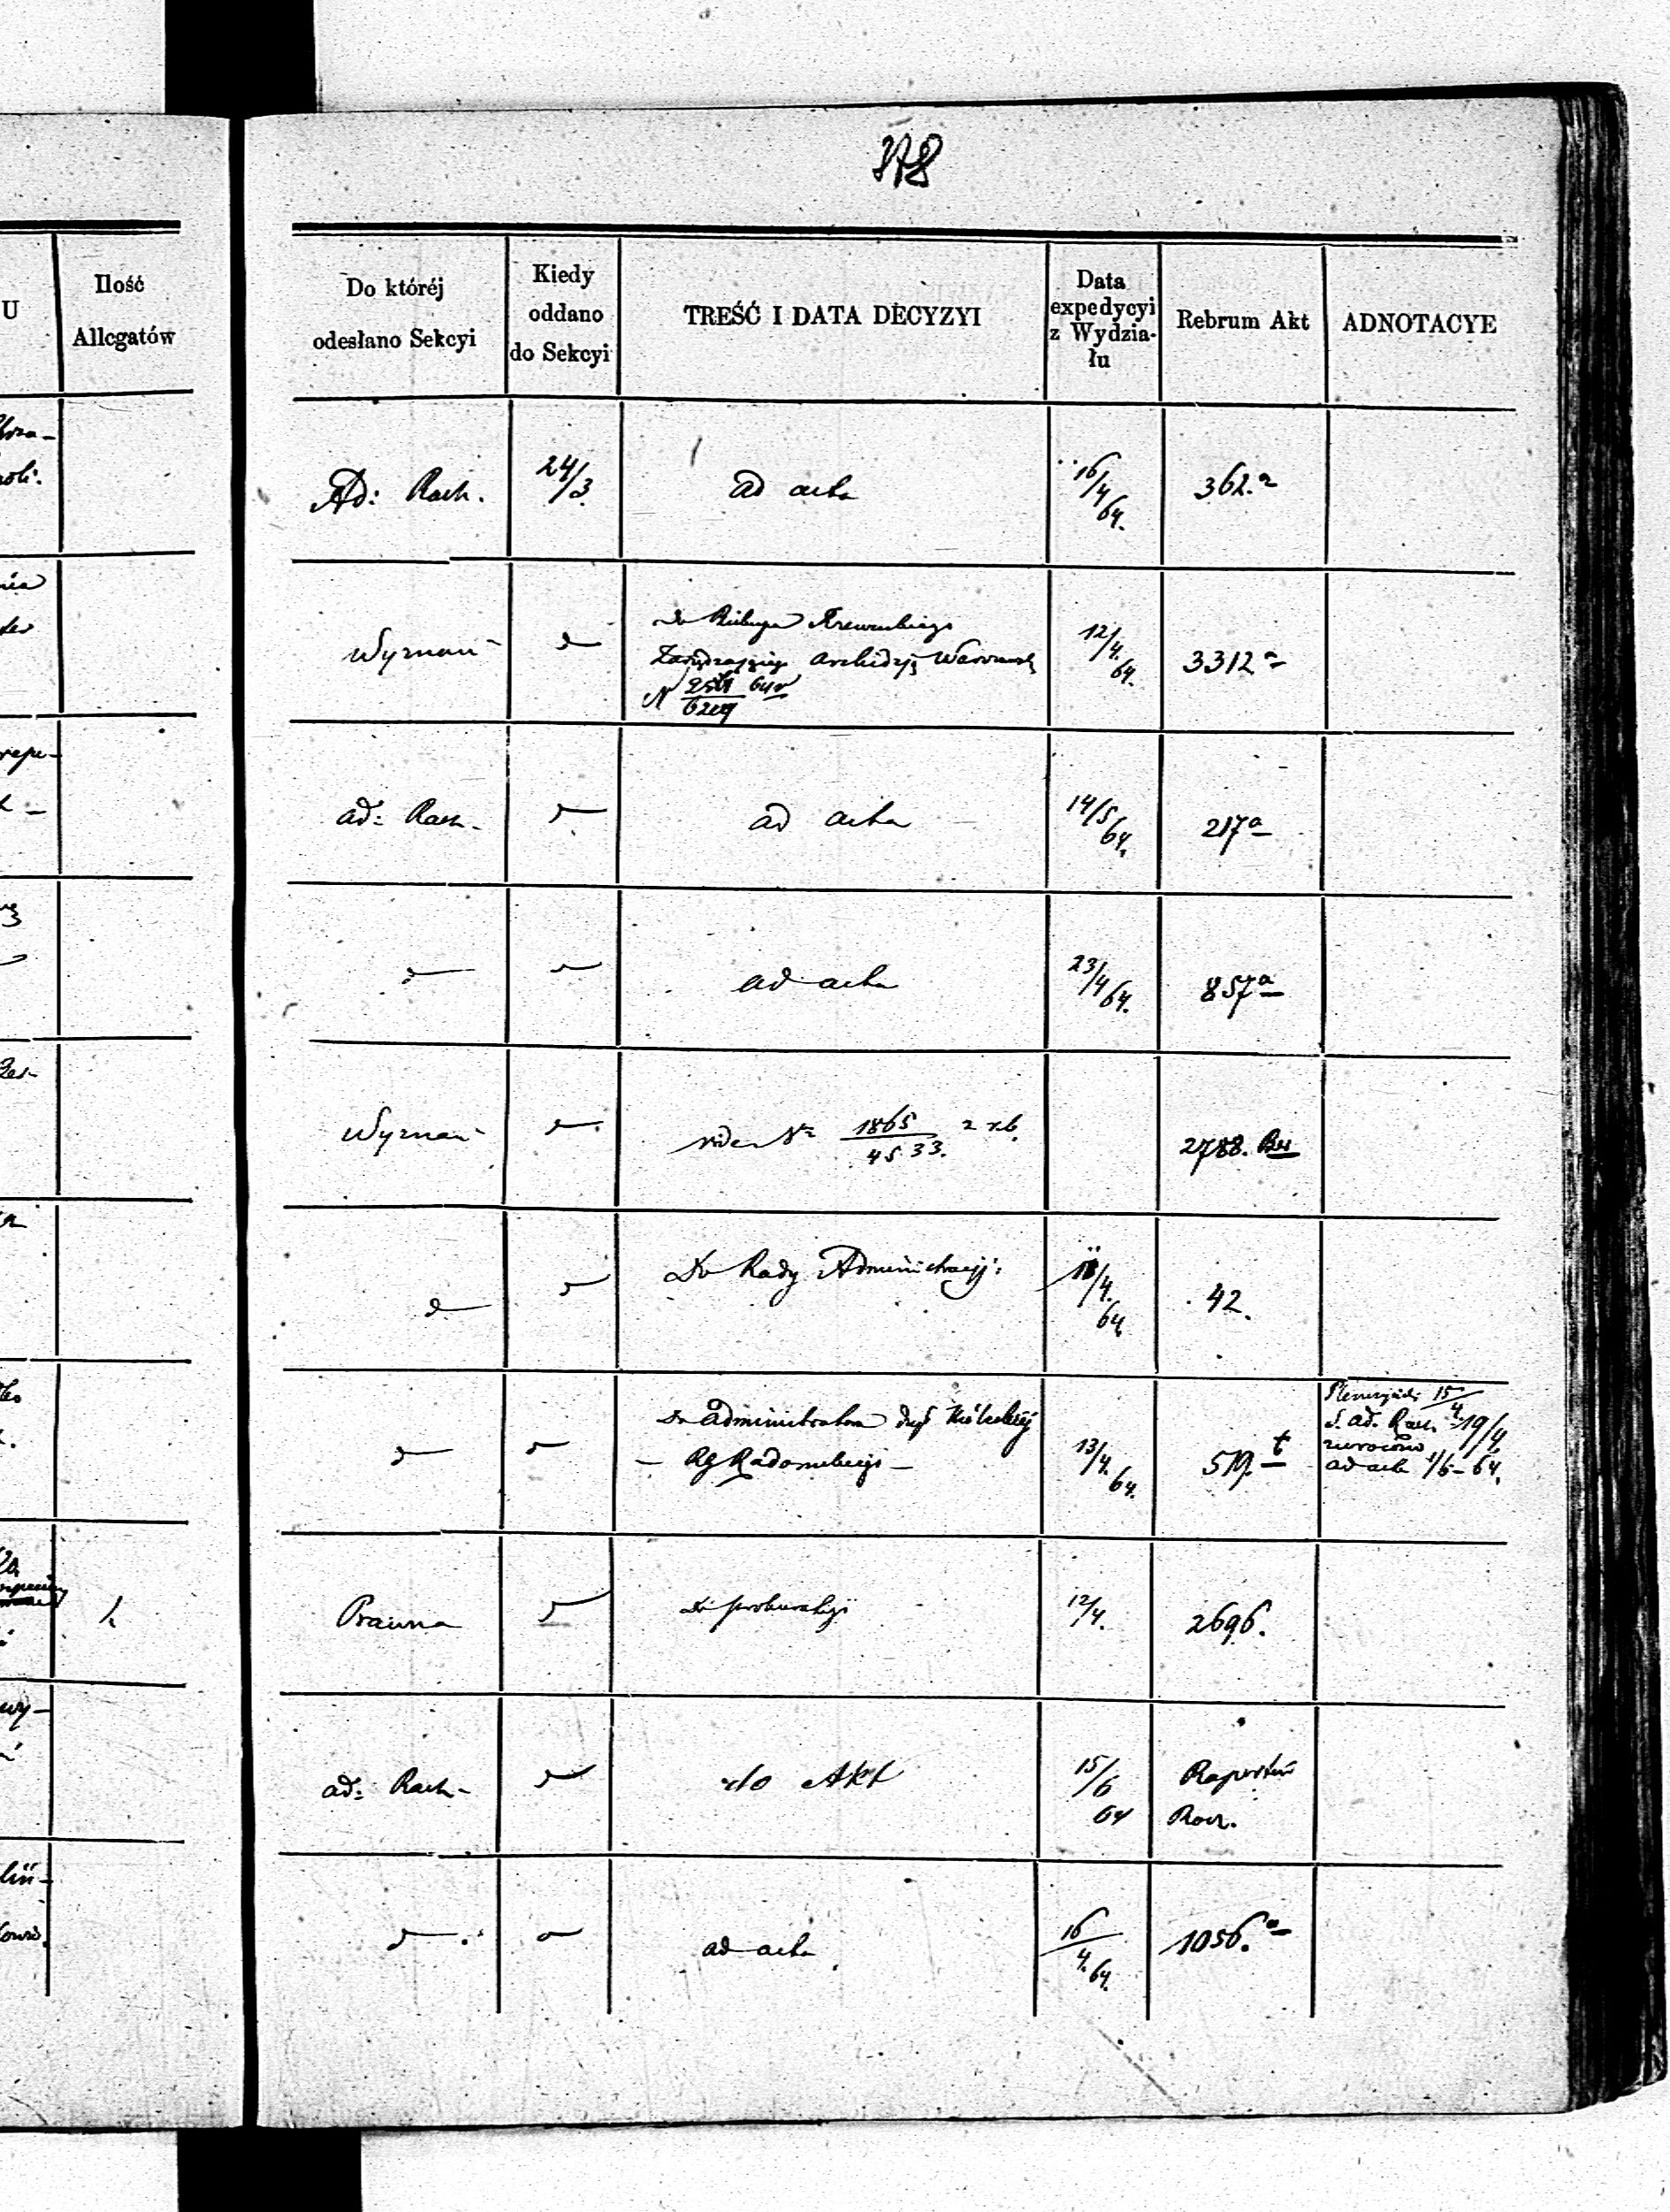 378
U
Ilość
Allegatów
Do któréj
odesłano Sekcyi
Kiedy
oddano
do Sekcyi
TREŚĆ I DATA DECYZYI
Data
expedycyi
z Wydzia-
łu
Rebrum Akt
ADNOTACYE
Ad: Rach.
24/3
ad acta
16/4 64.
362.a
Wyznań
Do Biskupa
Zarządzającego Archidyj Warszawsk
N
12/4. 64.
3312 a
ad: Rach.
ad acta
14/5 64.
217 a
ad acta
23/4 64.
857 a
Wyznań
vide Nr 1865/4533. z rb.
2788.
Do Rady Administracyj:
/4. 64
42.
Do Administratora Dyj Kielecki
– RG Radomskiego –
13/4. 64.
519. t
15/4
S. ad. Rach. 19/4.
zwrócono
ad acta 1/6 – 64.
Prawna
Do prokuratoryi
12/4.
2696.
ad: Rach –
do Akt
15/6 64
Raportów
Rocz.
ad acta
16/4. 64.
1056. a